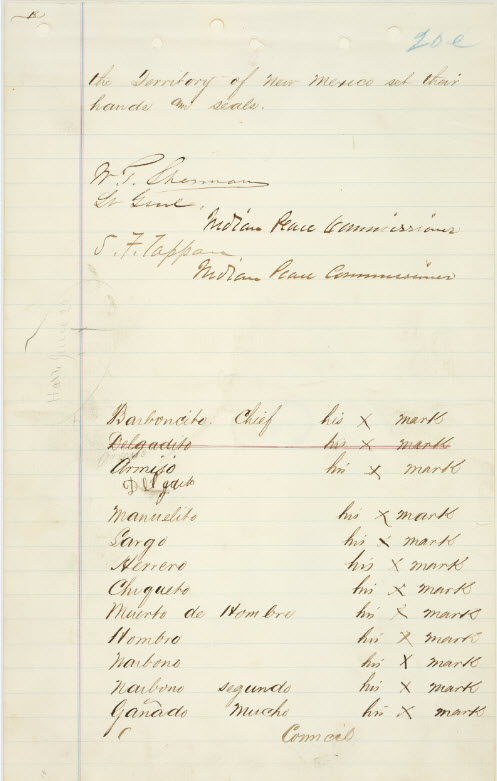 20 e
the Territory of New Mexico set their
hands an seals.
W. T. Sherman
Lt Genl,
Indian Peace Commissioner
S. F. Tappan
Indian Peace Commissioner
Barboncito, Chief his X mark
Delgadito his X mark
Armijo his X mark
Delgado
Manuelito his X mark
Largo his X mark
Herrero his X mark
Chiqueto his X mark
Muerto de Hombre his X mark
Hombro his X mark
Narbono his X mark
Narbono segundo his X mark
Gañado Mucho his X mark
Council